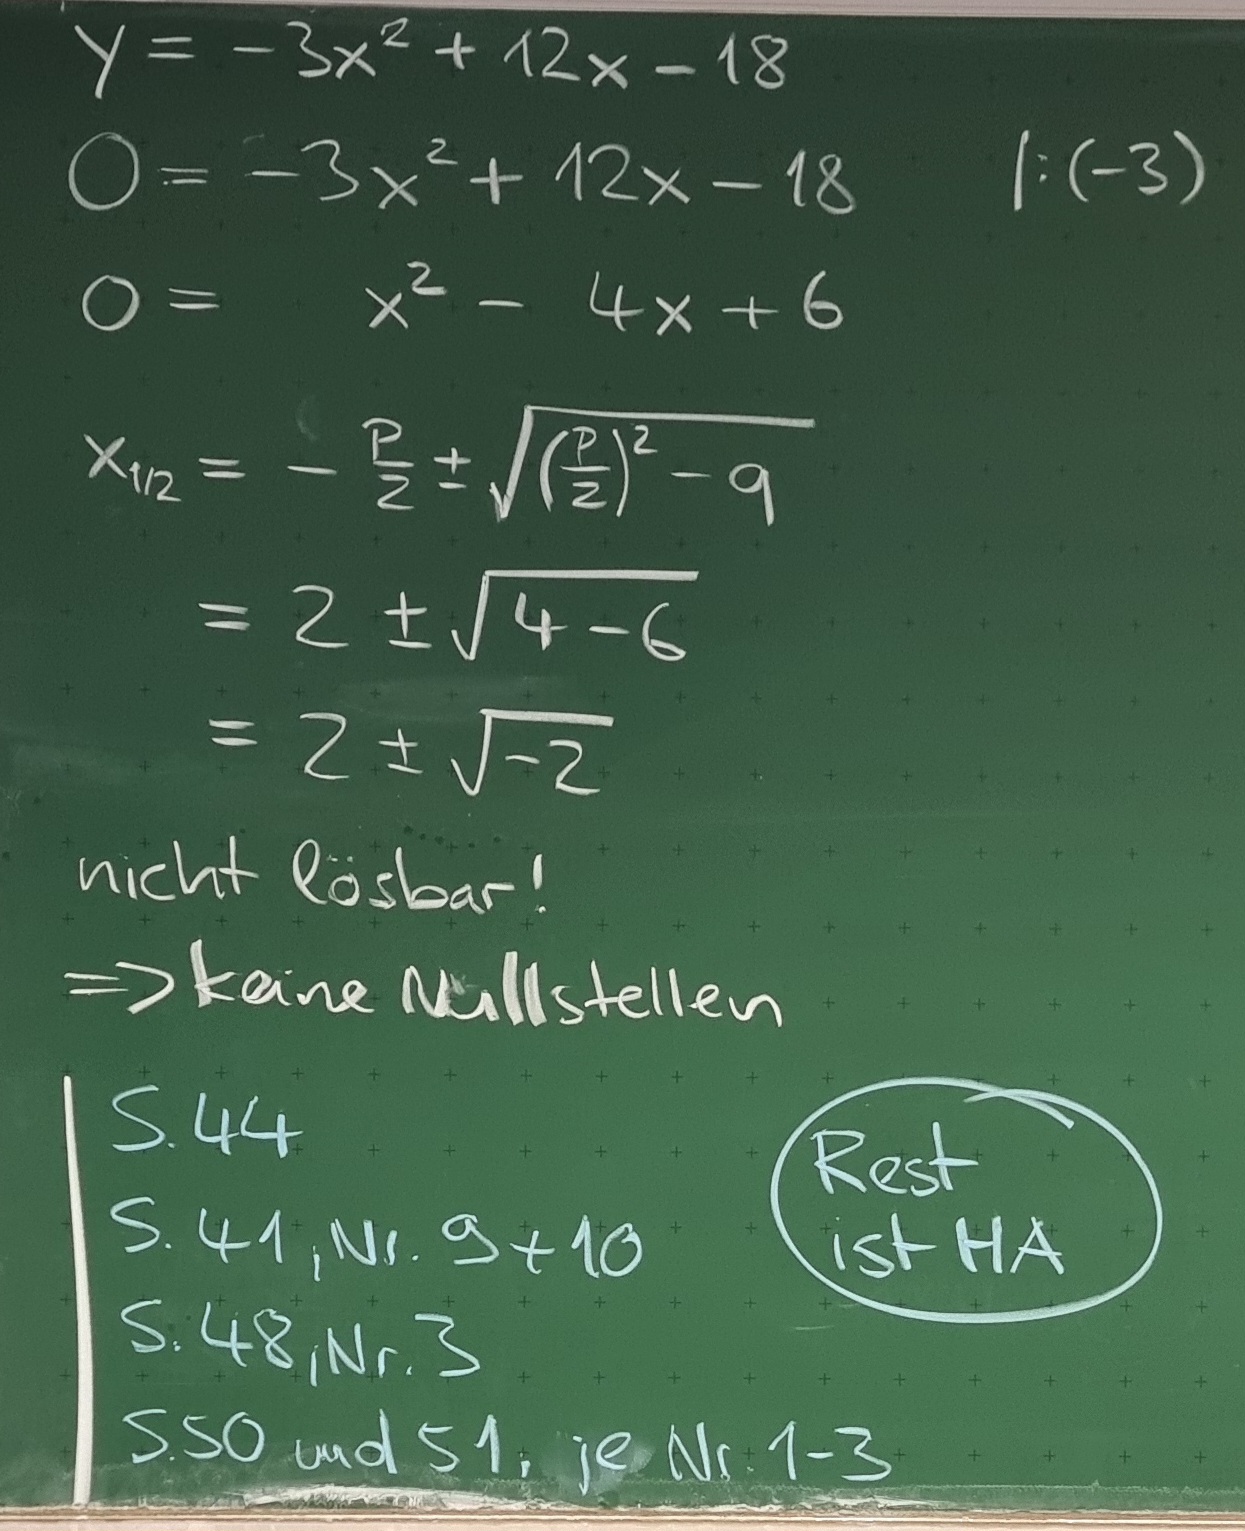 y = -3x² + 12x - 18
0 = -3x² + 12x - 18 |:(-3)
0 = x² - 4x + 6
x₁/₂ = - p/2 ± √((p/2)² - q)
= 2 ± √(4-6)
= 2 ± √(-2)
nicht lösbar!
=> keine Nullstellen
S. 44
S. 41, Nr. 9 + 10
S. 48, Nr. 3
S. 50 und 51, je Nr. 1-3
Rest
ist HA